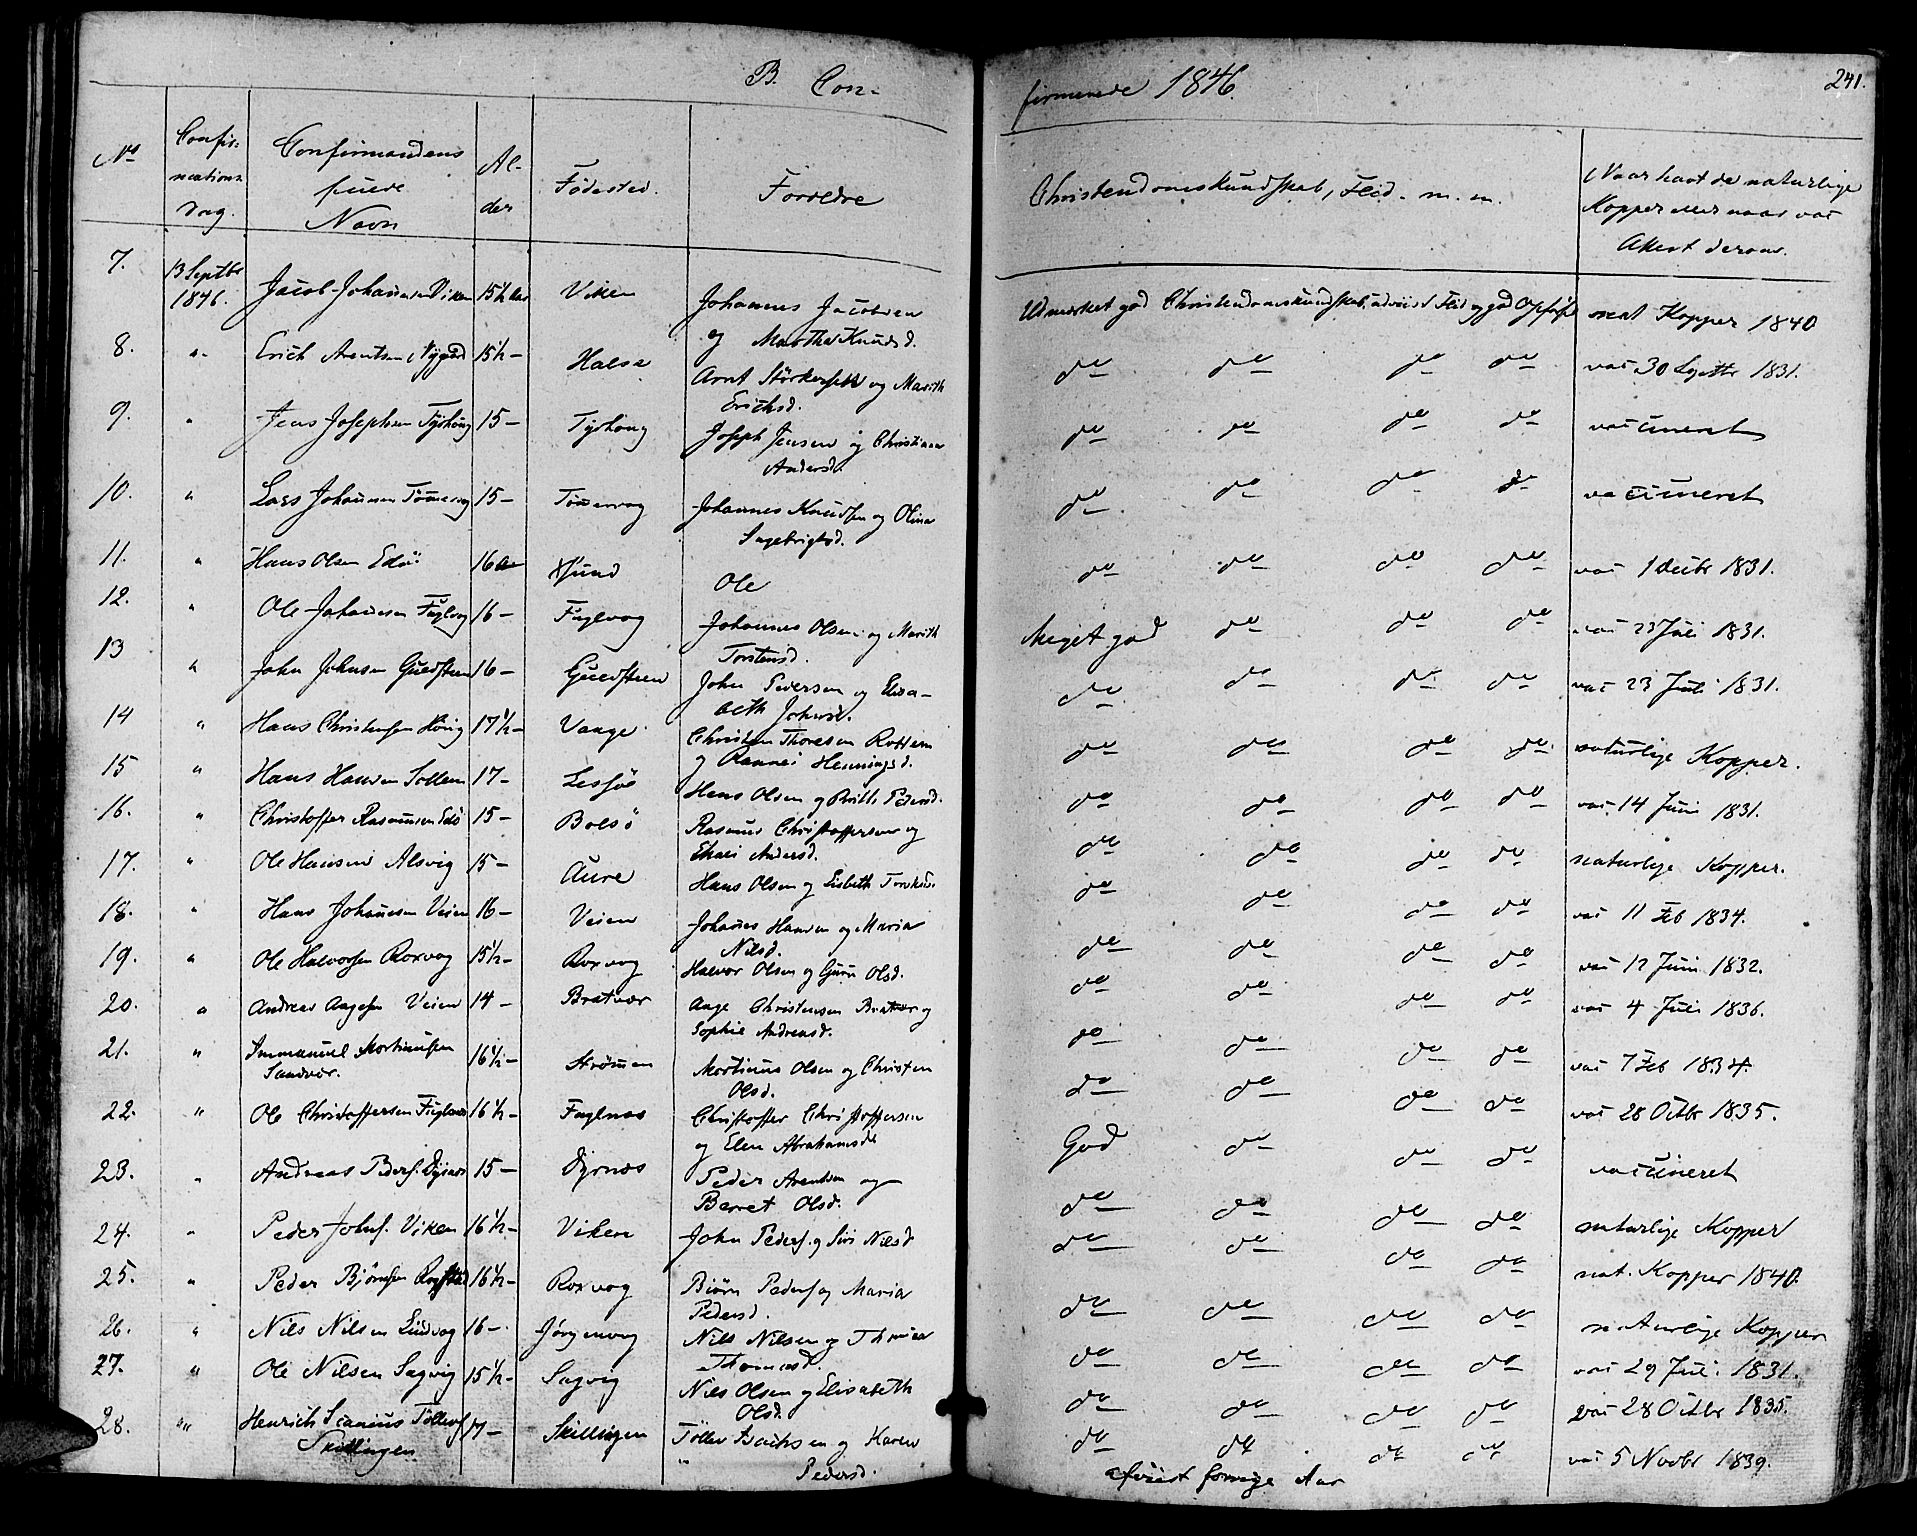 B. Con-
firmerede 1846.
241.
No
Confir-
mations
Dag.
Confirmandens
fulde
Navn
Al-
der
Fødested.
Forældre
Christendomskundskab, Flid. m. m.
Naar havt de naturlige
Kopper eller naar vac
Attest derom.
7. 13 Septbr 1846. Jacob Johannesen Viken 15½ Aar Viken Johannes Jacobsen
og Martha Knudsd.
Udmærket god Christendomskundskab, udviist Flid og god Opførsel nat Kopper 1840
8. " Erich Arentsen Nygard 15½ - Halsa Arnt Størkersen og Marith
Erichsd.
do do do do vac 30 Septbr 1831.
9. " Jens Josephsen Tyshoug 15 - Tyshoug Joseph Jensen og Christiana
Andersd.
do do do do vaccineret
10. " Lars Johannesen Tømmervog 15 - Tømmervog Johannes Knudsen og Olina
Ingebrigtsd.
do do do do vaccineret
11. " Hans Olsen Edø 16 Aar Ole
do do do do vac 1 Decbr 1831.
12. " Ole Johannesen Fuglvog 16 - Fuglvog Johannes Olsen og Marith
Torstensd.
Meget god do do do vac 23 Juli 1831.
13 " John Johnsen Guldsteen 16 - Guldsteen John Pedersen og Elisa-
beth Johnsd.
do do do do vac 23 Juli 1831.
14 " Hans Christensen 17½ - Vaage Christen Thoresen Rottem
og Rannei Henningsd.
do do do do naturlige Kopper.
15 " Hans Hansen Sollem 17 - Lesjøe Hans Olsen og Britt Pedersd.
do do do do vac 14 Juni 1831.
16. " Christoffer Rasmusen Edø 15 - Bolsø Rasmus Christoffersen og
Andersd.
do do do do naturlige Kopper.
17. " Ole Hansen Alsvig 15 - Aure Hans Olsen og Lisbeth
do do do do vac 11 Feb 1834.
18. " Hans Johannesen Veien 16 - Veien Johannes Hansen og Maria
Nilsd.
do do do do vac 12 Juni 1832.
19. " Ole Halvorsen Roxvog 15½ - Roxvog Halvor Olsen og Guru Olsd.
do do do do vac 4 Juli 1836.
20. " Andreas Aagesen Veien 14 - Bratvær Aage Christensen Bratvær og
Sophie Andreasd.
do do do do vac 7 Feb 1834.
21. " Immanuel Mortinusen
Sandvær. 16½ - Strømmen Mortinus Olsen og Christen
Olsd.
do do do do vac 28 Octbr 1835.
22. " Ole Christoffersen Fuglnæs 16½ - Fuglnæs Christoffer Christoffersen
og Elen Abrahamsd
God do do do vaccineret
23. " Andreas Peders. Dyrnæs 15 - Dyrnæs Peder Arentsen og
Berret Olsd.
do do do do naturlige Kopper
24. " Peder Johns. Viken 16½ - Viken John Peders. og Siri Nilsd
do do do do nat. Kopper 1840.
25. " Peder Bjørnsen 16½ - Roxvog Biørn Peders og Maria
Pedersd.
do do do do naturlige Kopper
26. " Nils Nilsen Lindvog 16 - Jørgenvog Nils Nilsen og
Thomasd.
do do do do vac 29 Juli 1831.
27. " Ole Nilsen Sagvig 15½ - Sagvig Nils Olsen og Elisabeth
Olsd.
do do do do vac 28 Octbr 1835.
28. " Henrich Tøllefs
Skillingen 17 - Skillingen Tøllev og Karen
Pedersd.
do do do do vac 5 Novbr 1839.
afviist forrige Aar